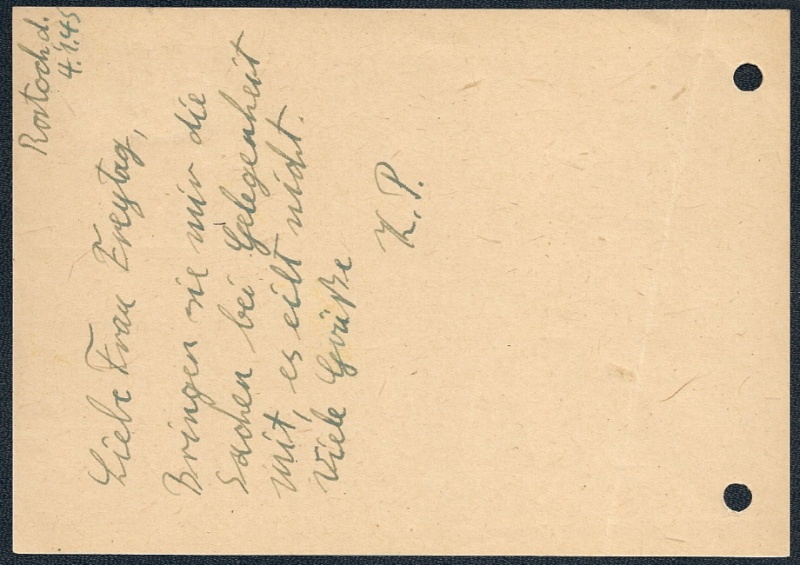 Rostock d.
4.1.45
Liebe Frau Freytag,
Bringen sie mir die
Sachen bei Gelegenheit
mit, es eilt nicht.
Viele Grüße
K.P.